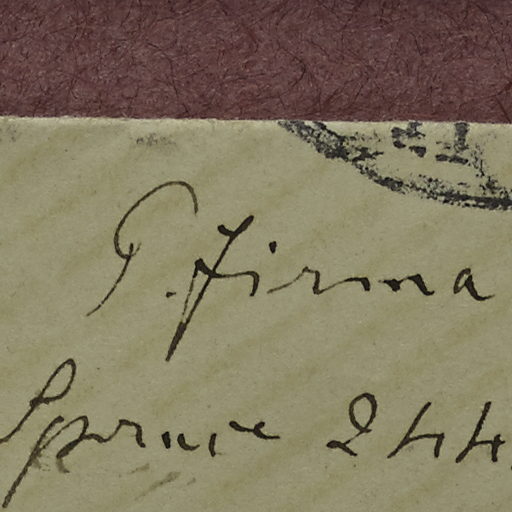 P. firma
Spruce 244.